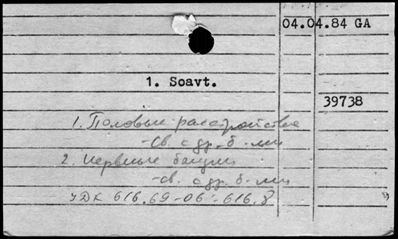 04.04.84 GA
1. Soavt.
39738
1. Половые расстройства
- св. с др. б-ми
2. Нервные
- св. с др. б-ми
УДК 616.69-06:616.8